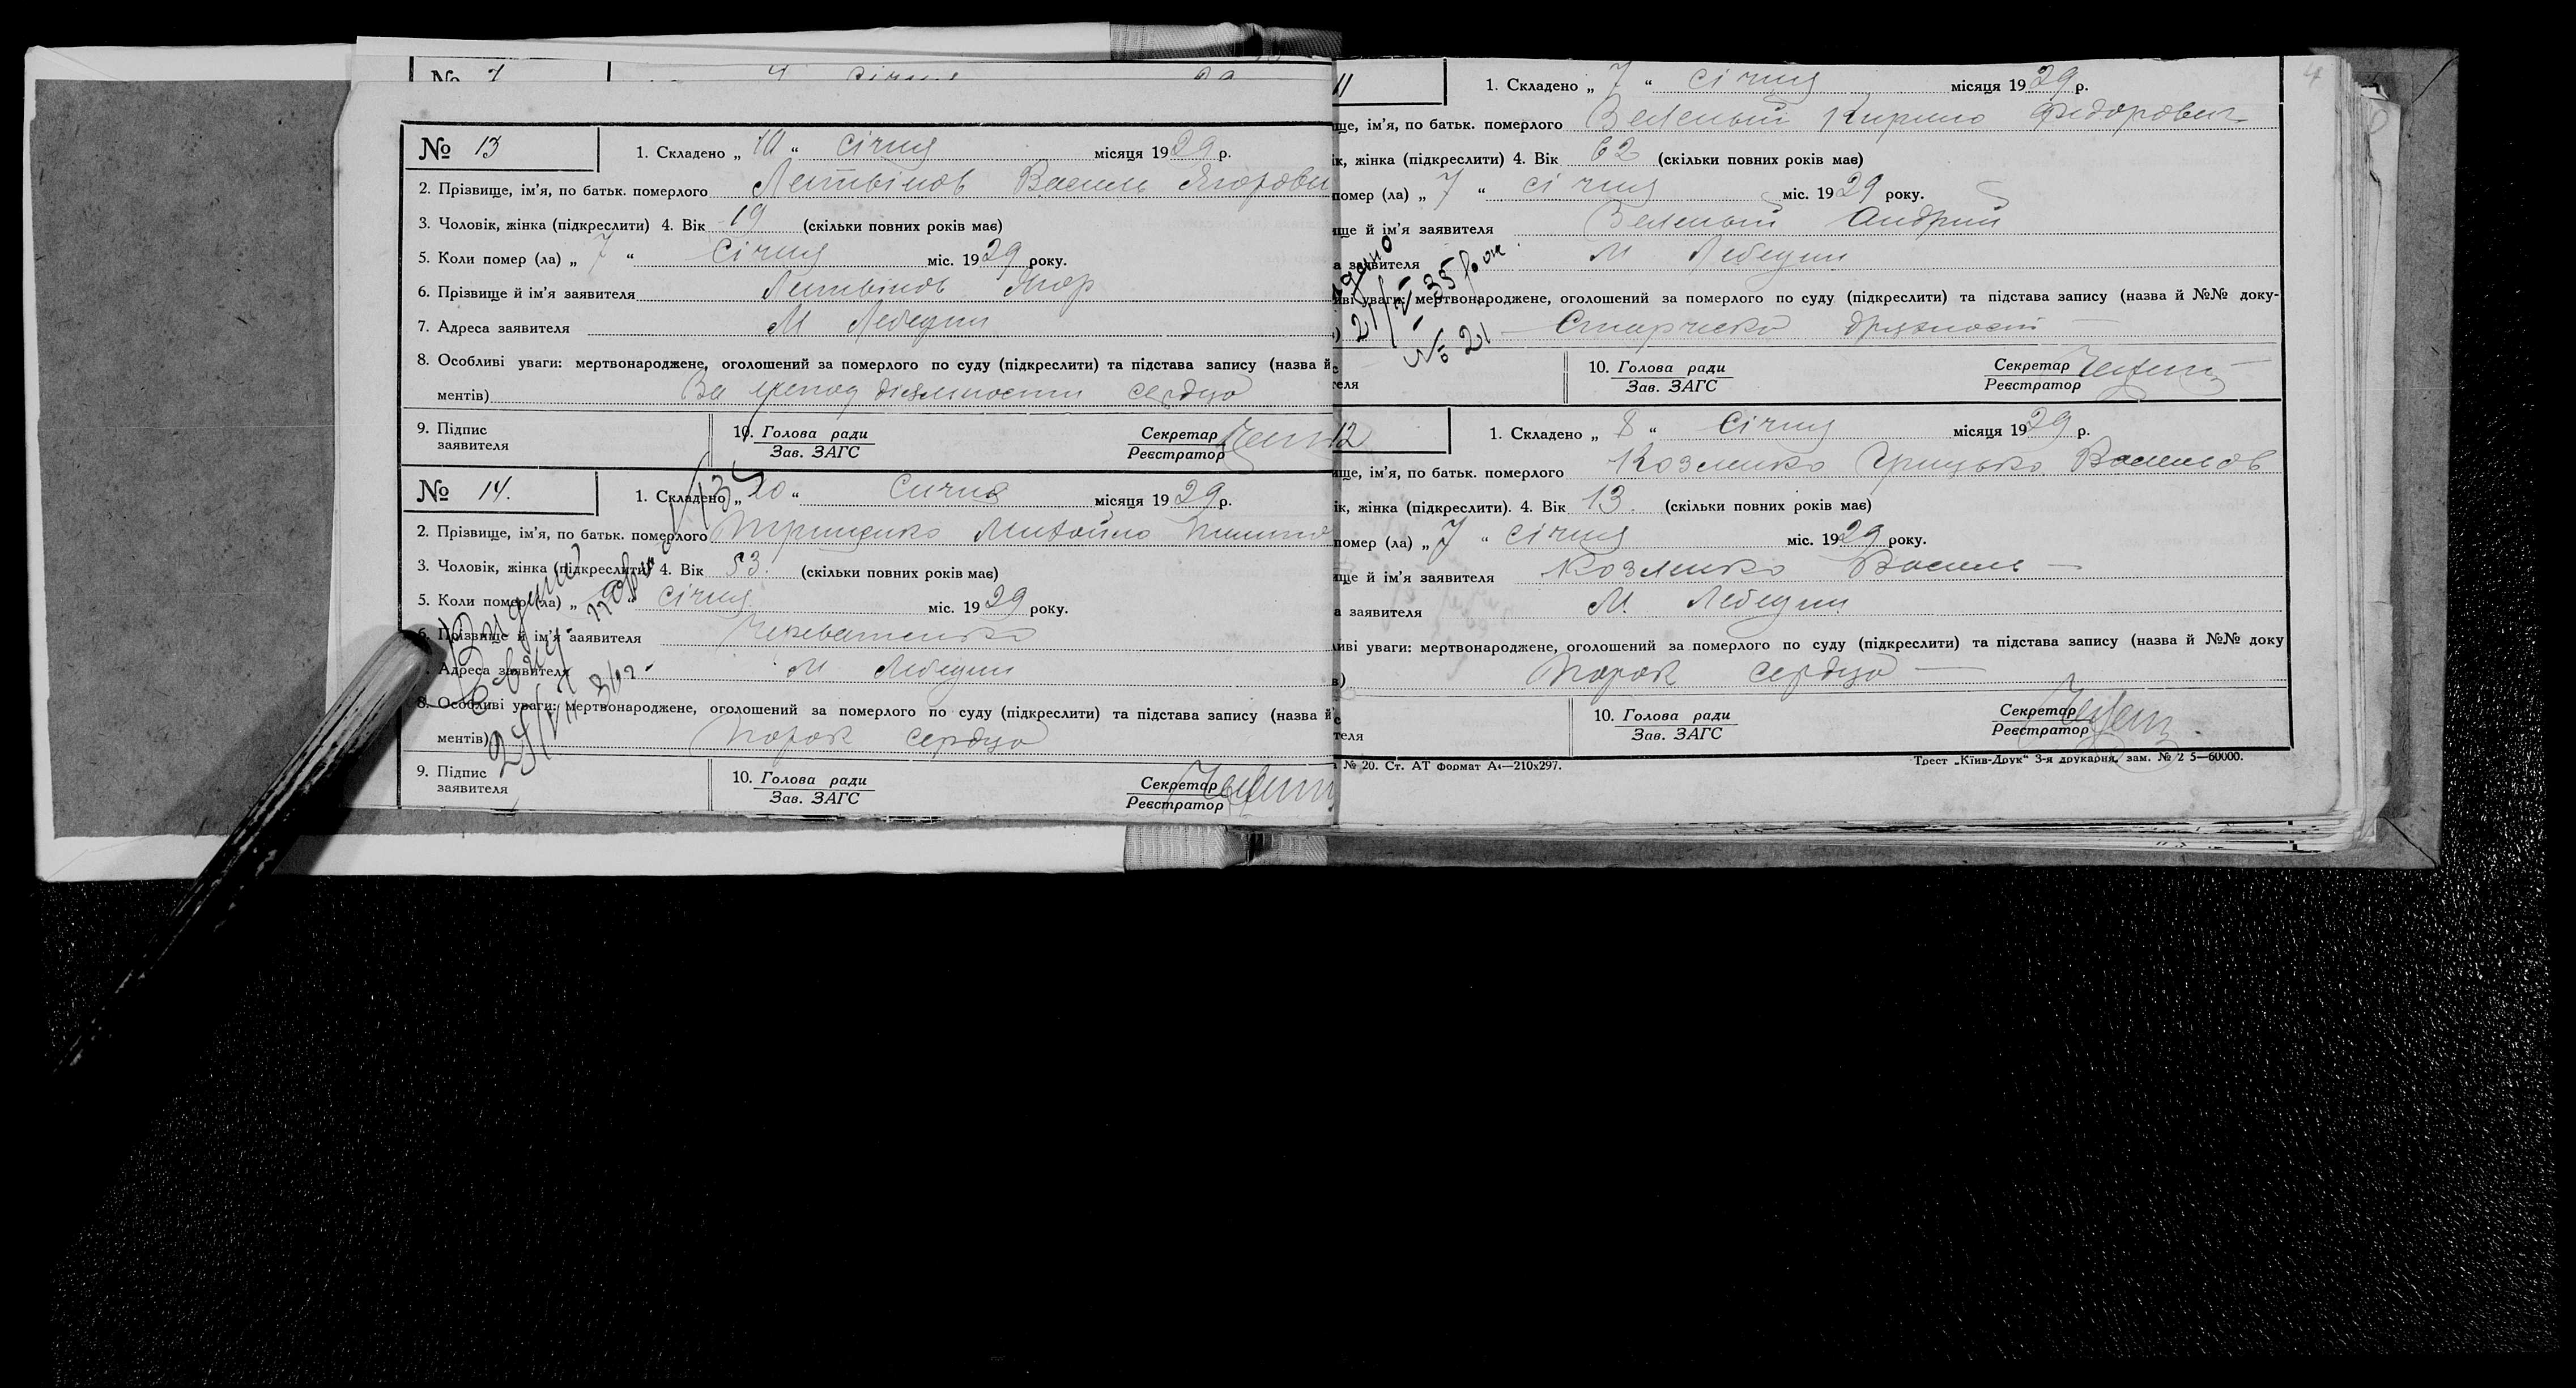 № 7 4 січня 29
№ 13 1. Складено „ 10 “ Січня місяця 1929 р.
2. Прізвище, ім'я, по батьк. померлого Литвінов Василь Ягорови
3. Чоловік, жінка (підкреслити) 4. Вік 19 (скільки повних років має)
5. Коли помер (ла) „ 7 “ Січня міс. 1929 року.
6. Прізвище й ім'я заявителя Литвінов Ягор
7. Адреса заявителя М Лебедин
8. Особливі уваги: мертвонароджене, оголошений за померлого по суду (підкреслити) та підстава запису (назва й
ментів) діяльности сердця
9. Підпис заявителя 10. Голова ради Зав. ЗАГС Секретар Реєстратор
№ 14. 1. Складено „ 10 “ Сичня місяця 1929 р.
2. Прізвище, ім'я, по батьк. померлого Михайло
3. Чоловік, жінка (підкреслити) 4. Вік 53. (скільки повних років має)
5. Коли помер (ла) „ “ Січня міс. 1929 року.
6. Прізвище й ім'я заявителя
7. Адреса заявителя М Лебедин
8. Особливі уваги: мертвонароджене, оголошений за померлого по суду (підкреслити) та підстава запису (назва й
ментів) Порок сердця
9. Підпис заявителя 10. Голова ради Зав. ЗАГС Секретар Реєстратор
4
11 1. Складено „ 7 “ січня місяця 1929 р.
ще, ім'я, по батьк. померлого Зеленый Кирило Федорович
ік, жінка (підкреслити) 4. Вік 62 (скільки повних років має)
помер (ла) „ 7 “ січня міс. 1929 року.
ище й ім'я заявителя Зеленый Андрий
а заявителя М Лебедин
иві уваги: мертвонароджене, оголошений за померлого по суду (підкреслити) та підстава запису (назва й №№ доку-
Старческа дряхлость
№ 21
теля 10. Голова ради Зав. ЗАГС Секретар Реєстратор
12 1. Складено „ 8 “ Січня місяця 1929 р.
ище, ім'я, по батьк. померлого Козленко Грицько Васильов
ік, жінка (підкреслити). 4. Вік 13. (скільки повних років має)
помер (ла) „ 7 “ січня міс. 1929 року.
ище й ім'я заявителя Козленко Василь
а заявителя М. Лебедин
иві уваги: мертвонароджене, оголошений за померлого по суду (підкреслити) та підстава запису (назва й №№ доку
в) Порок сердця
теля 10. Голова ради Зав. ЗАГС Секретар Реєстратор
№ 20. Ст. АТ формат А4—210х297. Трест „Київ-Друк“ 3-я друкарня, зам. № 2 5—60000.